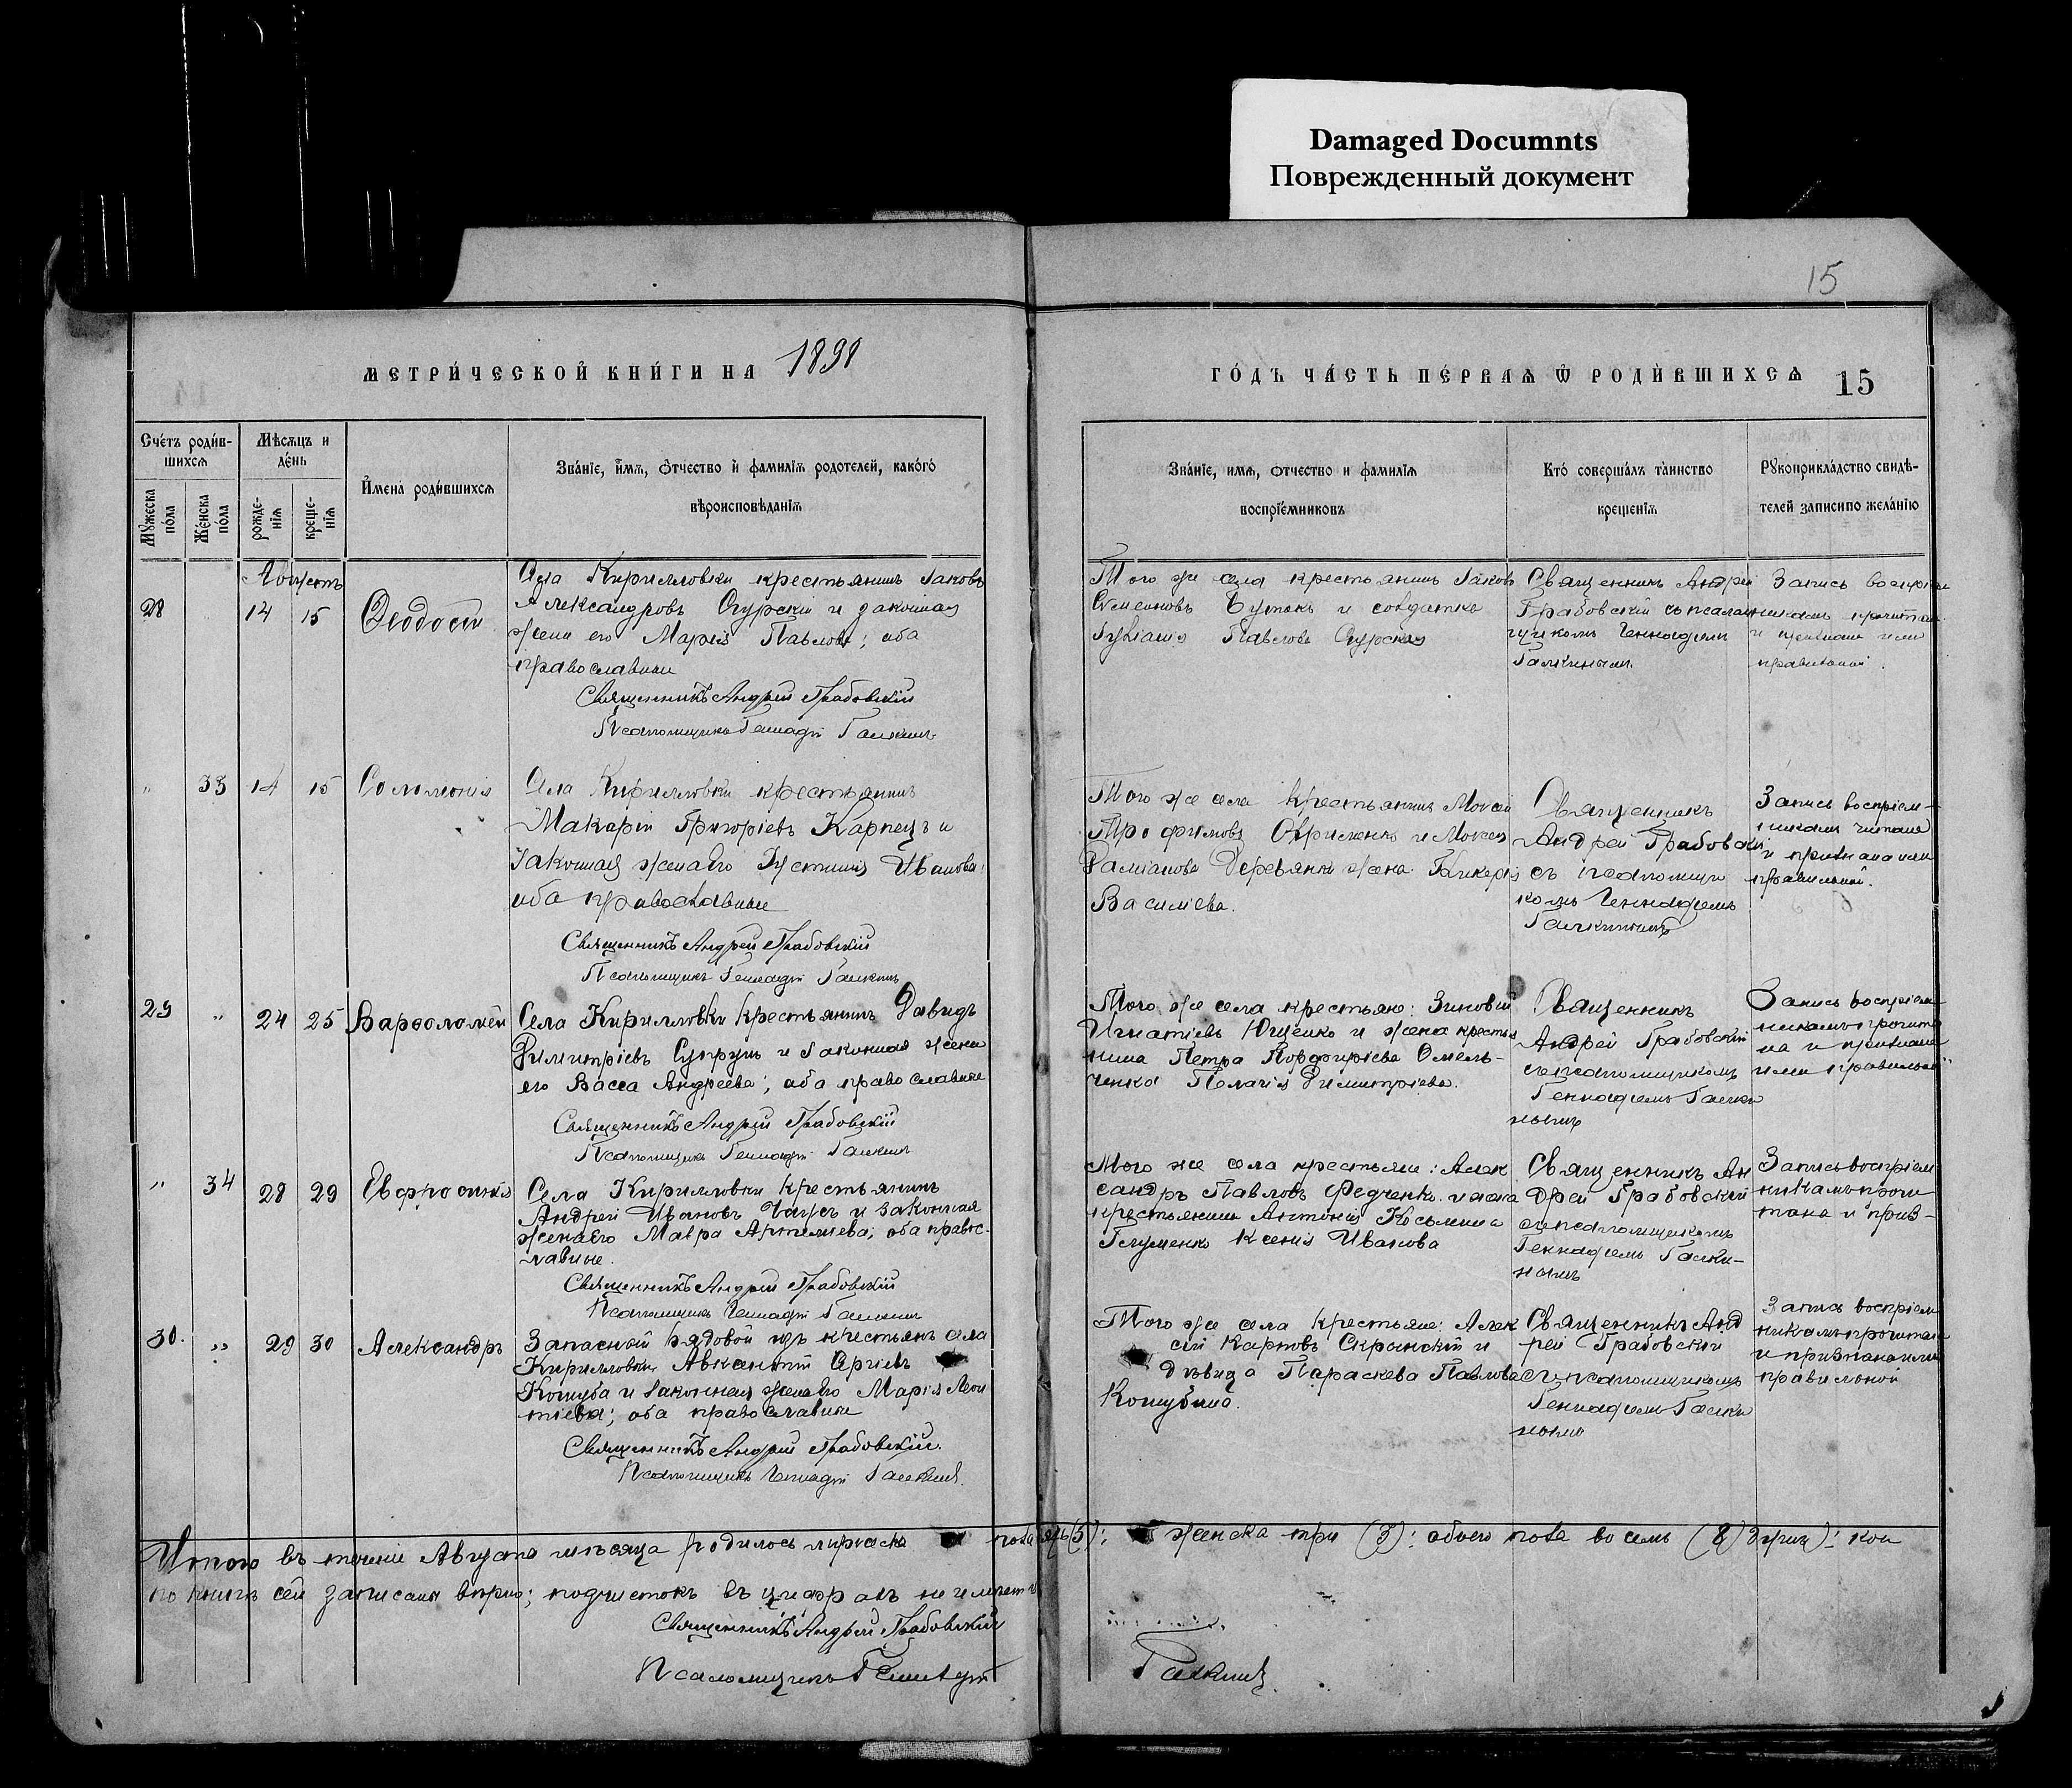 Damaged Documnts
Поврежденный документ
15
МЕТРИ́ЧЕСКОЙ КНИ́ГИ НА 1898
ГО́ДЪ ЧА́СТЬ ПЕ́РВАѦ Ѿ РОДИ́ВШИХСѦ 15
Сче́тъ роди́в-
шихсѧ
Мѣсѧцъ и
де́нь
Мꙋжеска
по́ла
Же́нска
по́ла
рожде-
нїѧ
креще-
нїѧ
И҆мена̀ роди́вшихсѧ
Зва́нїе, и҆́мѧ, ѻ҆́тчество и҆ фамилїѧ родотелей, како́гѡ́
вѣроисповѣ́данїѧ
Зва́нїе, имѧ, ѻтчество и фамилїѧ
воспрїе́мниковъ
Кто́ соверша́лъ та́инство
креще́нїѧ
Рꙋкоприкла́дство свидѣ́-
телей записипо жела́нїю
Августъ
28 14 15 Ѳеодосій
Села Кирилловки крестьянинъ Іаковъ
Александровъ Огурскій и законная
жена его Марія Павлова; оба
православные
Священникъ Андрей Грабовскій
Псаломщикъ Геннадій Галкинъ
Того же села крестьянинъ Іаковъ
Семеновъ и солдатка
Павлова Огурская
Священникъ Андрей
Грабовскій съ псалом-
щикомъ Геннадіемъ
Галкинымъ.
Запись воспріем
никамъ прочитан
и признана ими
правильной.
" 33 14 15 Соломонія
Села Кирилловки крестьянинъ
Макарій Григоріевъ Карпецъ и
законная жена его Іустинія Иванова;
оба православные
Священникъ Андрей Грабовскій
Псаломщикъ Геннадій Галкинъ
Того же села крестьянинъ Моисей
Трофимовъ Охрименко и Моисея
Даміанова Деревянки жена Гликерія
Василіева.
Священникъ
Андрей Грабовскій
съ псаломщи
комъ Геннадіемъ
Галкинымъ
Запись воспріем-
никамъ читана
и признана ими
правильной.
29 " 24 25 Варѳоломей
Села Кирилловки крестьянинъ Давидъ
Димитріевъ Супрунъ и законная жена
его Васса Андреева; оба православные
Священникъ Андрей Грабовскій
Псаломщикъ Геннадій Галкинъ
Того же села крестьяне: Зиновій
Игнатіевъ Ющенко и жена крестья
нина Петра Порфиріева Омель-
ченка Пелагія Димитріева.
Священникъ
Андрей Грабовскій
съ псаломщикомъ
Геннадіемъ Галки
нымъ
Запись воспріем-
никамъ прочита
на и признана
ими правильной
" 34 28 29 Евфросинія
Села Кирилловки крестьянинъ
Андрей Ивановъ Чаусъ и законная
жена его Мавра Артеміева; оба правос-
лавные.
Священникъ Андрей Грабовскій
Псаломщикъ Геннадій Галкинъ
Того же села крестьяне: Алек
сандръ Павловъ Федченко и жена
крестьянина Антонія Косьмина
Глуменко Ксенія Иванова
Священникъ Ан
дрей Грабовскій
съ псаломщикомъ
Геннадіемъ Галки-
нымъ
Запись воспріем
никамъ прочи
тана и приз-
30. " 29 30 Александръ
Запасной рядовой изъ крестьянъ села
Кирилловки Авксентій Сергіевъ
Кошуба и законная жена его Марія Леон
тіева; оба православные
Священникъ Андрей Грабовскій.
Псаломщикъ Геннадій Галкинъ.
Того же села крестьяне: Алек
сій Карповъ Скрынскій и
дѣвица Параскева Павлова
Кошубина.
Священникъ Анд
рей Грабовскій
съ псаломщикомъ
Геннадіемъ Галки
нымъ
Запись воспріем
никамъ прочитана
и признана ими
правильной
Итого въ теченіе Августа мѣсяца родилось мужеска пола пять (5): женска три (3): обоего пола восемь (8) душъ): кои
по книгѣ сей записаны вѣрно; подчистокъ въ цифрахъ не имѣетъ
Священникъ Андрей Грабовскій
Псаломщикъ Геннадій Галкинъ.